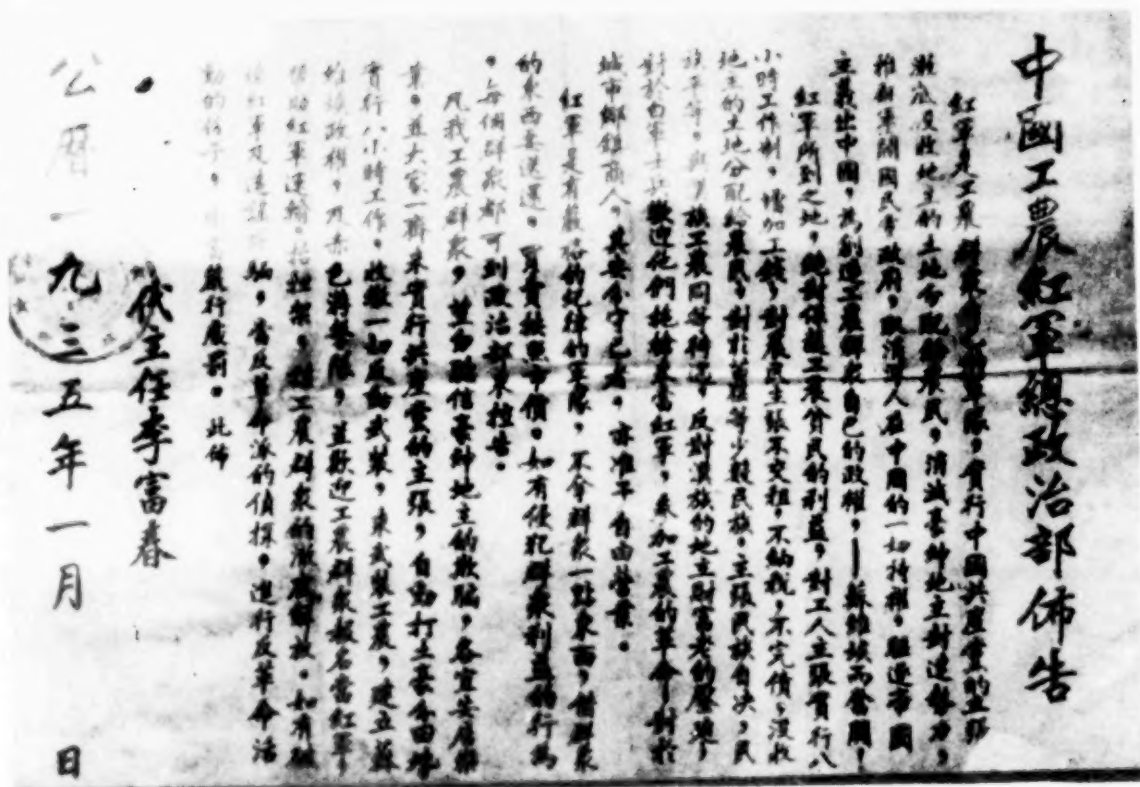 中國工農紅軍總政治部佈告
紅軍是工農群衆自己的軍隊,實行中國共產黨的主張
澈底沒收地主的土地分配給農民,消滅豪紳地主封建勢力,
推翻軍閥國民黨政府,取消洋人在中國的一切特權,驅逐帝國
主義出中國,爲創造工農群衆自己的政權,—蘇維埃而奮鬥!
紅軍所到之地,絕對保護工農貧民的利益,對工人主張實行八
小時工作制,增加工錢,對農民主張不交租,不納稅,不完債,沒收
地主的土地分配給農民,對於苗等少數民族,主張民族自決,民
族平等,與漢族工農同等待遇,反對漢族的地主財富老的壓迫,
對於白軍士兵歡迎他們拖槍來當紅軍,參加工農的革命—對於
城市鄉鎮商人,其安分守己者,亦准予自由營業。
紅軍是有嚴格的紀律的軍隊,不拿群衆一點東西,借群衆
的東西要送還,買賣按照市價。如有侵犯群衆利益的行爲
。每個群衆都可到政治部來控告。
凡我工農群衆,望勿聽信豪紳地主的欺騙,各宜安居樂
業。並大家一齊來實行共產黨的主張,自動打土豪分田地
實行八小時工作。收繳一切反動武裝,來武裝工農,建立蘇
維埃政權,及赤色游擊隊,並歡迎工農群衆報名當紅軍,
幫助紅軍運輸。抬担架,謀工農群衆的澈底解放。如有破
壞紅軍及造謡欺騙,當反革命派的偵探。進行反革命活
動的份子,嚴行處罰。此佈
代主任李富春
公曆一九三五年一月 日